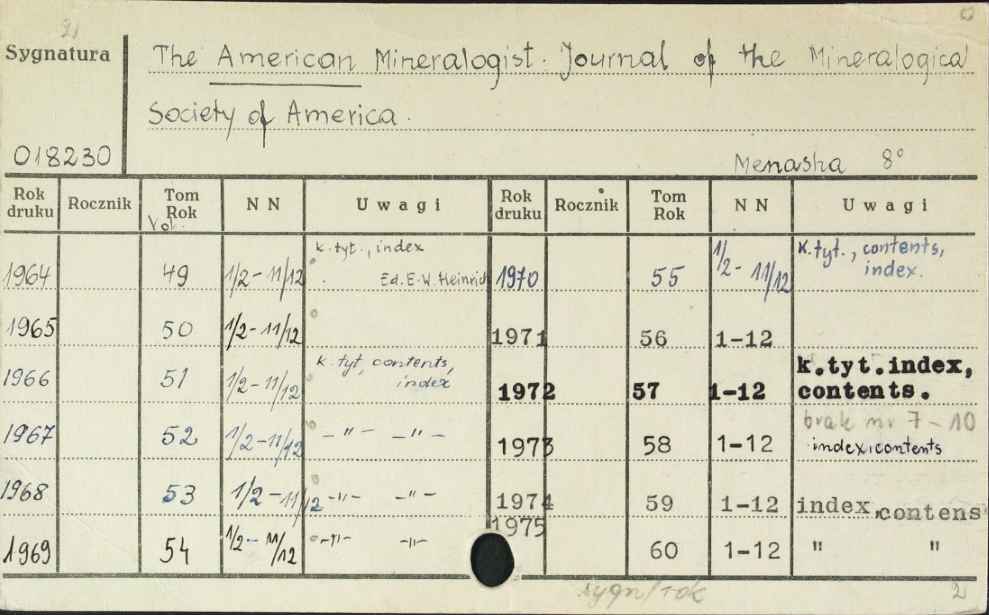 21
Sygnatura
The American Mineralogist. Journal of the Mineralogica
Society of America.
018230
Menasha 8°
Rok druku Rocznik Tom Rok Vol. NN Uwagi Rok druku Rocznik Tom Rok NN Uwagi
1964 49 1/2-11/12 k.tyt., index
Ed. E.W. Heinrich
1970 55 1/2-11/12 k.tyt., contents,
index.
1965 50 1/2-11/12
1971 56 1-12
1966 51 1/2-11/12 k.tyt, contents,
index
1972 57 1-12 k.tyt.index,
contents.
1967 52 1/2-11/12 -"- -"-
1973 58 1-12 brak nr 7-10
index, contents
1968 53 1/2-11/12 -"- -"-
1974 59 1-12 index, contens
1969 54 1/2-11/12 -"- -"-
1975 60 1-12 " "
sygn/rok
2